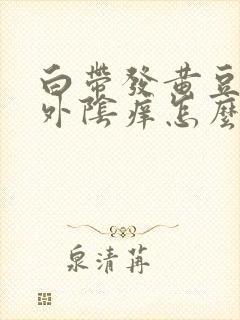 白帶發黃豆
外陰痒怎麼
泉清苒